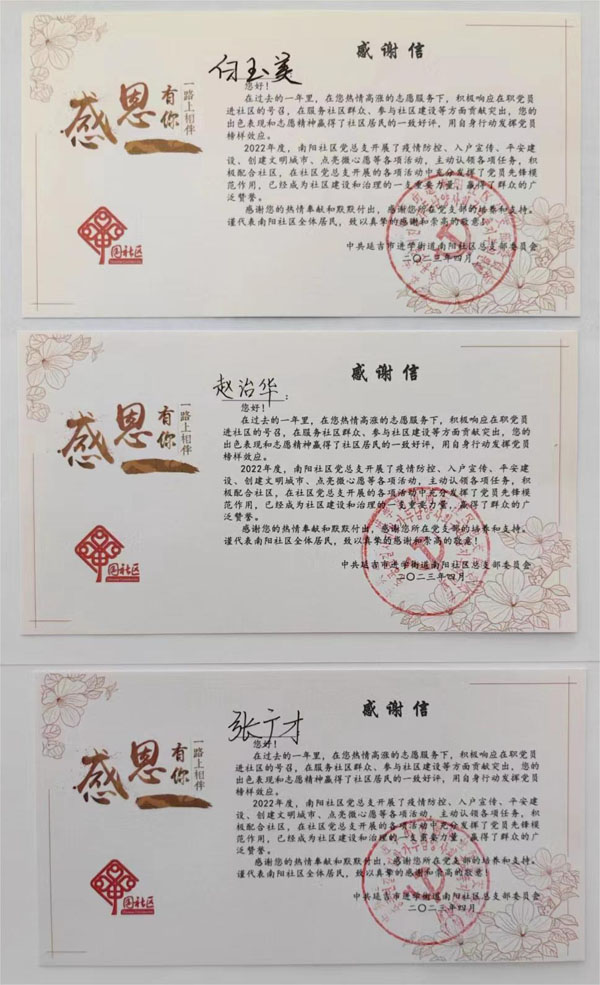 感谢信
感恩
有你
一路上相伴
白玉美
您好！
在过去的一年里，在您热情高涨的志愿服务下，积极响应在职党员
进社区的号召，在服务社区群众、参与社区建设等方面贡献突出，您的
出色表现和志愿精神赢得了社区居民的一致好评，用自身行动发挥党员
榜样效应。
2022年度，南阳社区党总支开展了疫情防控、入户宣传、平安建
设、创建文明城市、点亮微心愿等各项活动，主动认领各项任务，积
极配合社区，在社区党总支开展的各项活动中充分发挥了党员先锋模
范作用，已经成为社区建设和治理的一支重要力量，赢得了群众的广
泛赞誉。
感谢您的热情奉献和默默付出，感谢您所在党支部的培养和支持。
谨代表南阳社区全体居民，致以真挚的感谢和崇高的敬意！
中共延吉市进学街道南阳社区总支部委员会
二〇二三年四月
感谢信
感恩
有你
一路上相伴
赵治华：
您好！
在过去的一年里，在您热情高涨的志愿服务下，积极响应在职党员
进社区的号召，在服务社区群众、参与社区建设等方面贡献突出，您的
出色表现和志愿精神赢得了社区居民的一致好评，用自身行动发挥党员
榜样效应。
2022年度，南阳社区党总支开展了疫情防控、入户宣传、平安建
设、创建文明城市、点亮微心愿等各项活动，主动认领各项任务，
积极配合社区，在社区党总支开展的各项活动中充分发挥了党员先锋模
范作用，已经成为社区建设和治理的一支重要力量，赢得了群众的广
泛赞誉。
感谢您的热情奉献和默默付出，感谢您所在党支部的培养和支持。
谨代表南阳社区全体居民，致以真挚的感谢和崇高的敬意！
中共延吉市进学街道南阳社区总支部委员会
二〇二三年四月
感谢信
感恩
有你
一路上相伴
张广才
您好！
在过去的一年里，在您热情高涨的志愿服务下，积极响应在职党员
进社区的号召，在服务社区群众、参与社区建设等方面贡献突出，您的
出色表现和志愿精神赢得了社区居民的一致好评，用自身行动发挥党员
榜样效应。
2022年度，南阳社区党总支开展了疫情防控、入户宣传、平安建
设、创建文明城市、点亮微心愿等各项活动，主动认领各项任务，
积极配合社区，在社区党总支开展的各项活动中充分发挥了党员先锋模
范作用，已经成为社区建设和治理的一支重要力量，赢得了群众的广
泛赞誉。
感谢您的热情奉献和默默付出，感谢您所在党支部的培养和支持。
谨代表南阳社区全体居民，致以真挚的感谢和崇高的敬意！
中共延吉市进学街道南阳社区总支部委员会
二〇二三年四月